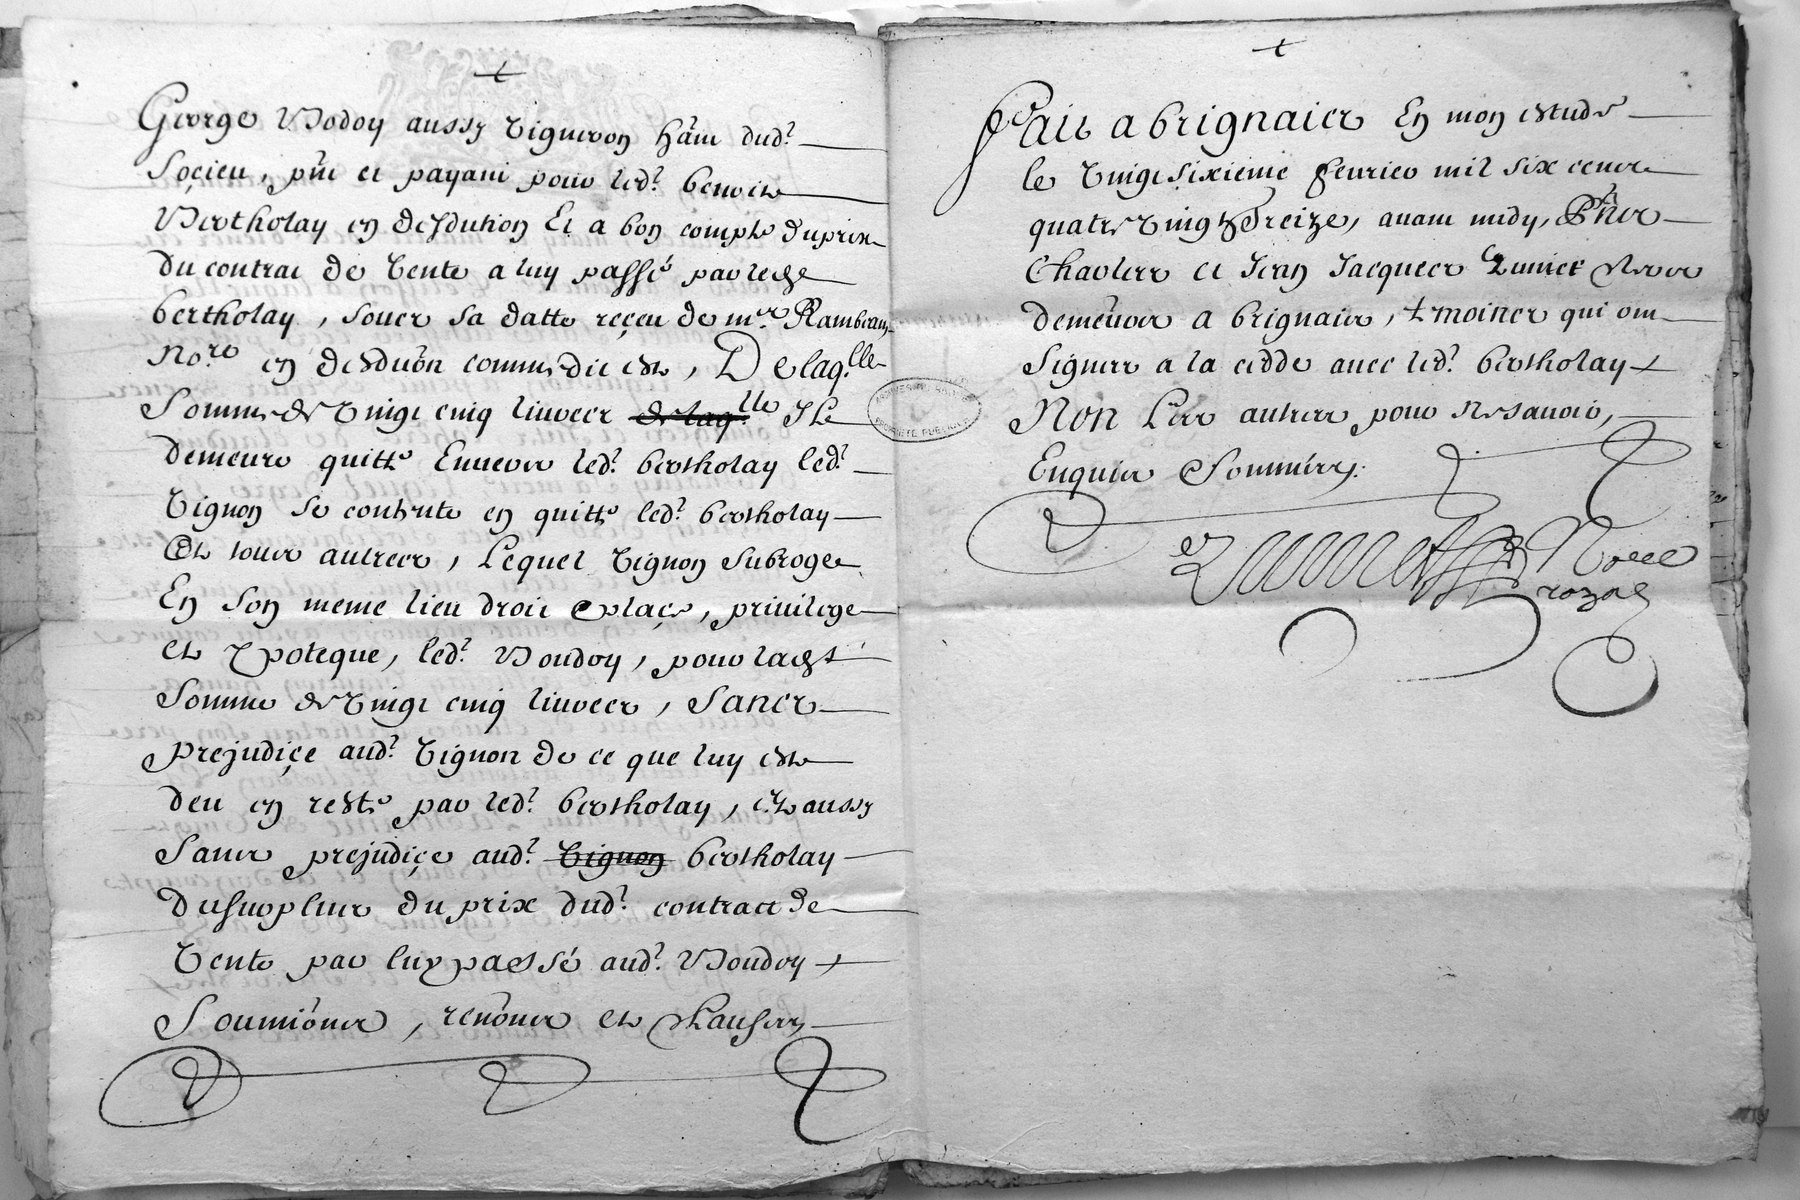 George Vodoy aussy vigneron hãnt dud.t
Soçieu, pñt et payant pour led.t benoist
Bertholay en desdution Et a bon compte du prix
du contrat de vente a luy passé par led.
bertholay, soucr sa datte reçeu de m.er Rambeau,
No.re en desduõn comme dit est, De laq.lle
Somme de vingt cinq liuvecr de laq.lle Il
demeure quitte Enuers led.t bertholay led.t
vignon se contente en quitte led.t bertholay
Et tous autrecr, Lequel vignon subroge
En son meme lieu droit & plaçe, priuilege
et ypoteque, led.t Voudoy, pour lad.
Somme de vingt cinq liurecr, Sancr
prejudiçe aud.t vignon de ce que luy est
deu en reste par led.t bertholay, et aussy
Sancr prejudiçe aud.t vignon bertholay
du surpluscr du prix dud.t contract de
vente par luy passé aud.t Voudoy
Soumiõncr, renõncr et clauser
Fait a brignaicr En mon estude
le vingt sixieme feurier mil six cent
quatre vingt treize, auant midy, Pñtcr
Charlecr et Jean Jacquecr Zunict
demeurcr a brignaicr, tmoincr qui ont
Signer a la cedde auec led.t bertholay
Non Lecr autrecr pour ne sauoir,
Enquicr & Sommer.
Nore
royal
ARCHIVES DU RHÔNE
PROPRIÉTÉ PUBLIQUE